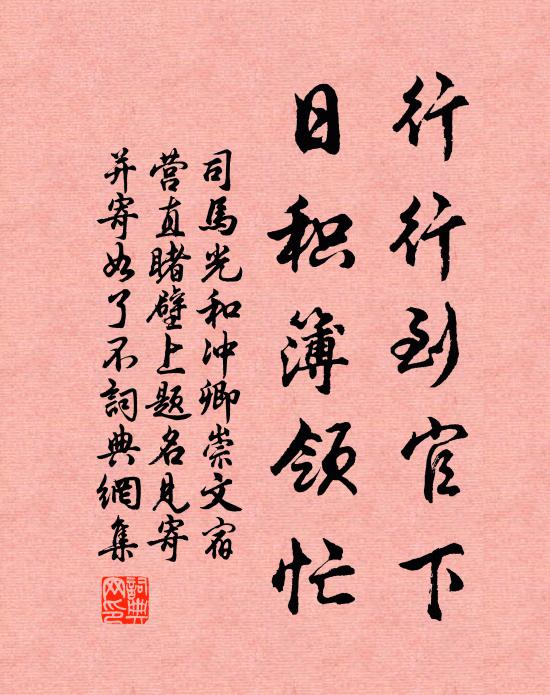 行行到官下
日积簿领忙
司馬光和冲卿崇文宿
营直睹壁上题名见寄
并寄如了不詞典網集
詞典網印